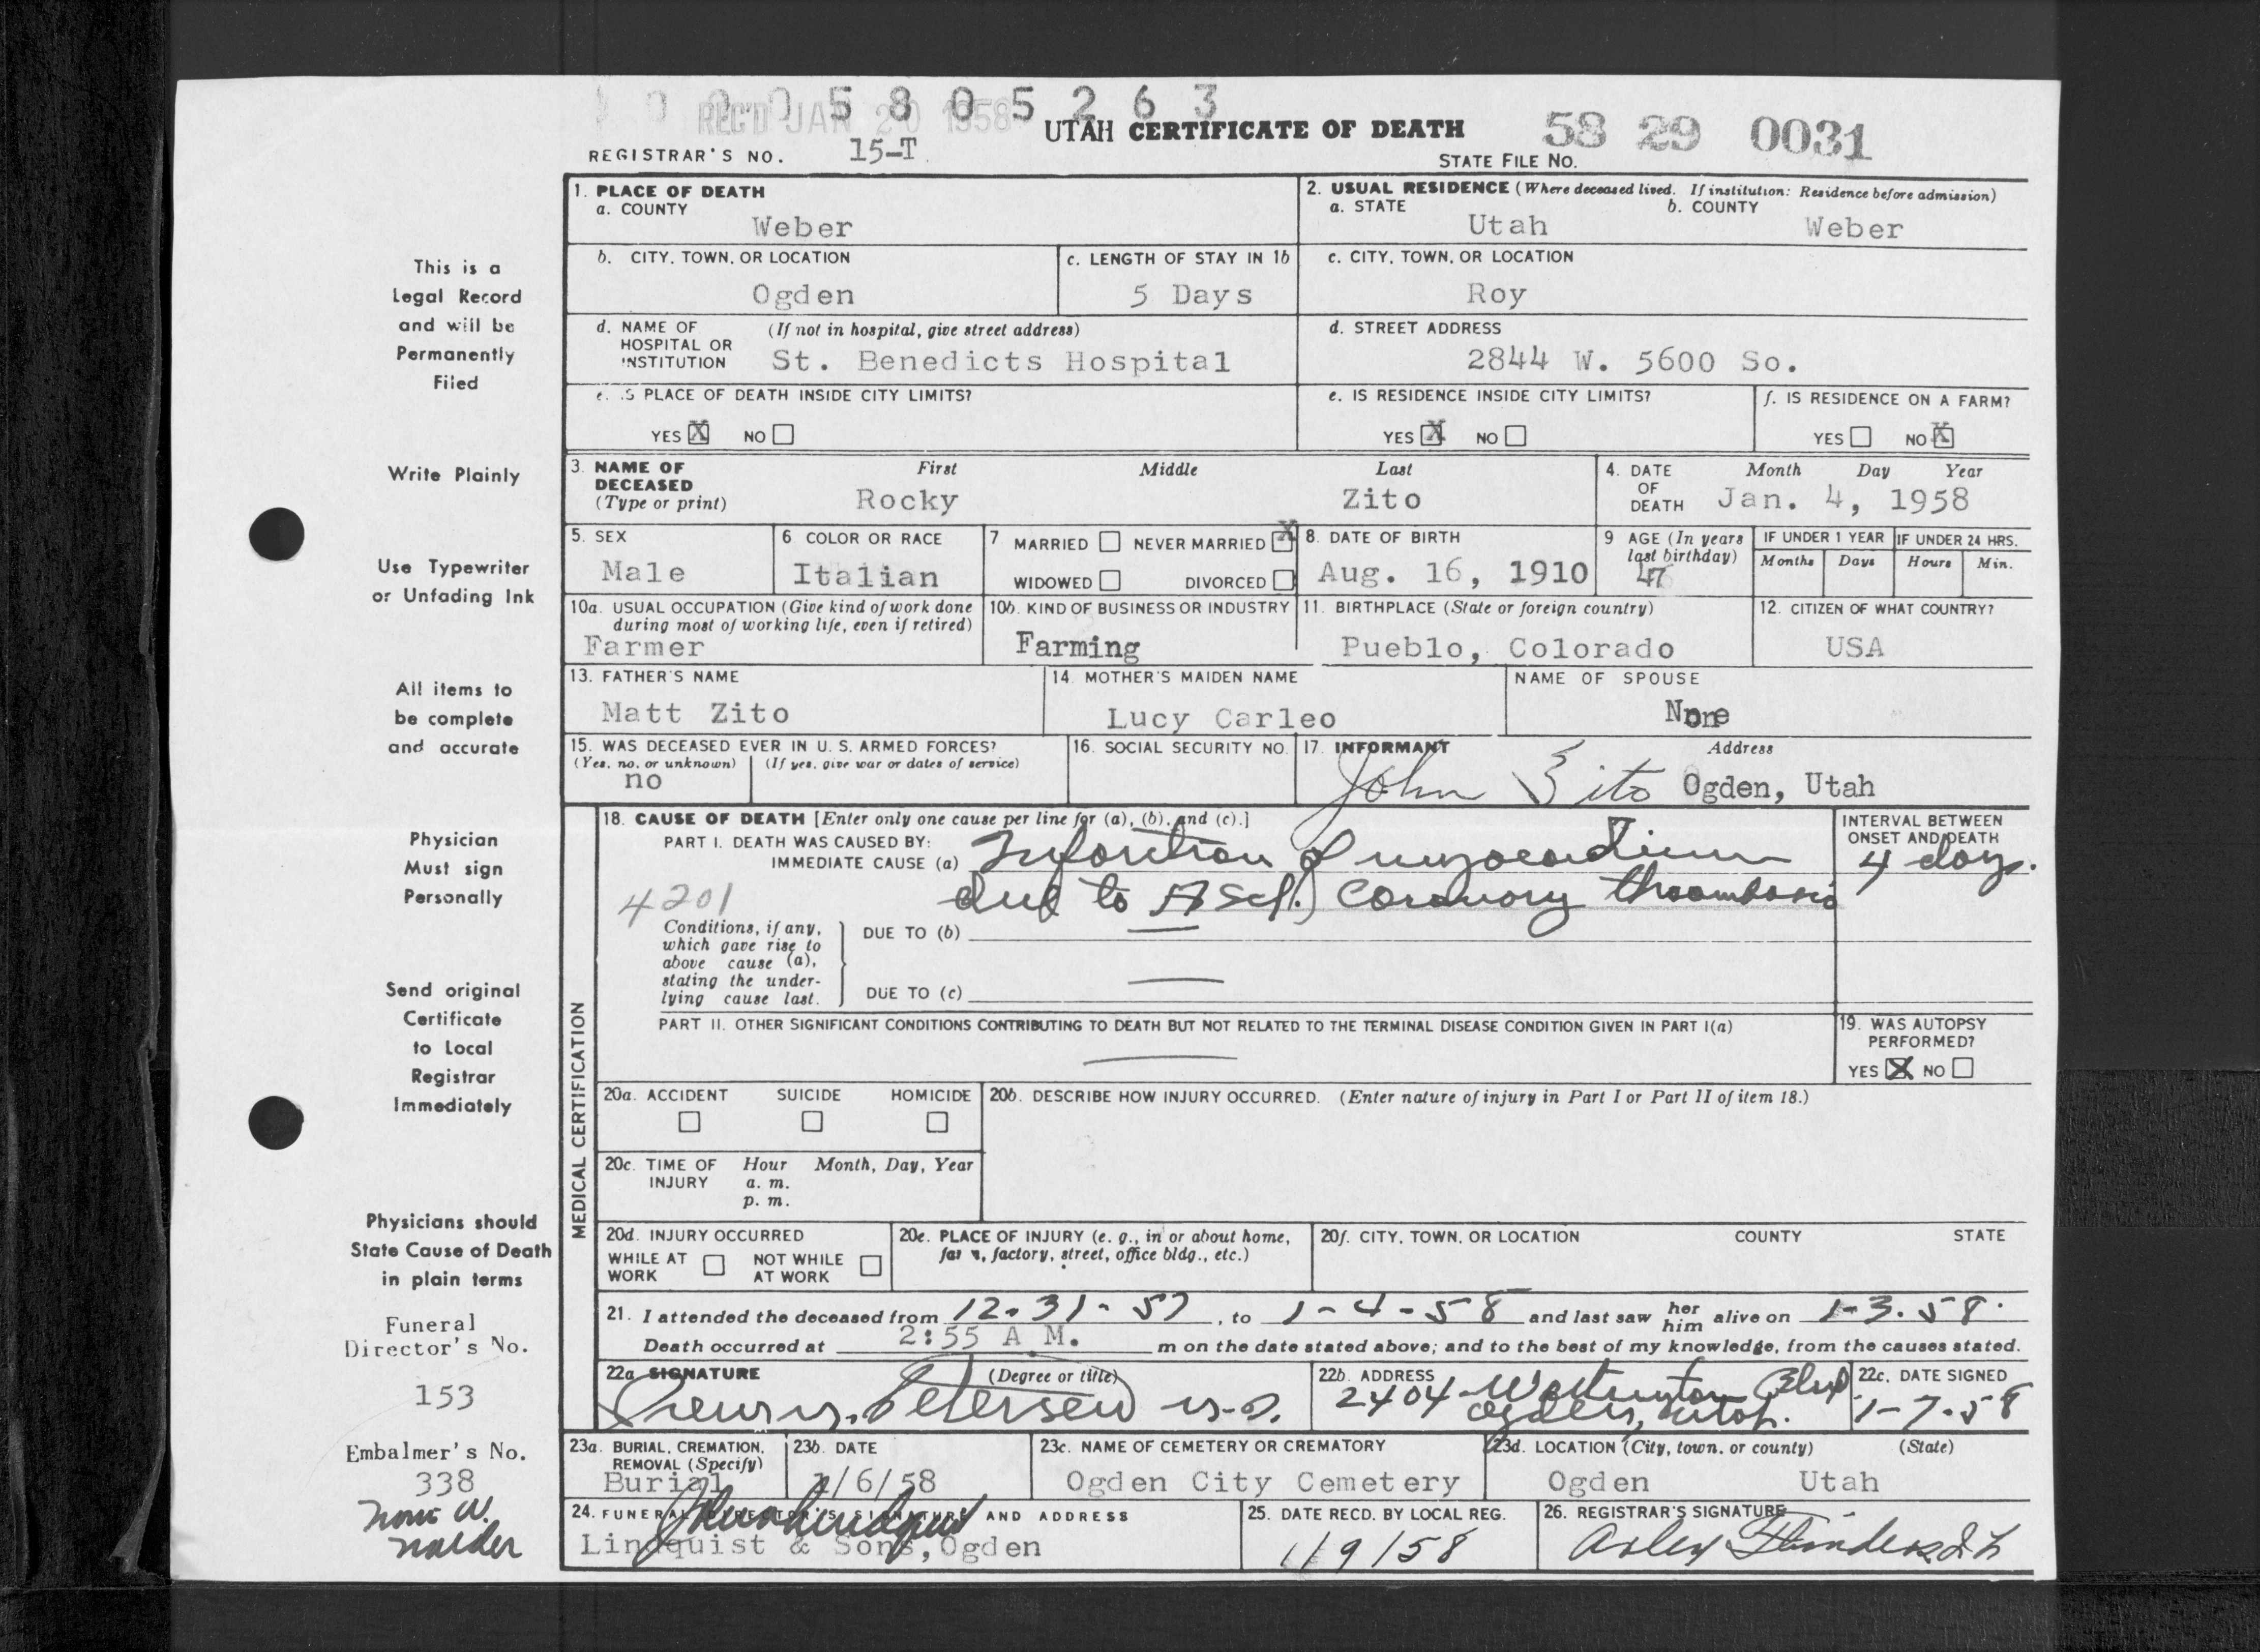 0 0 0 0 5 8 0 5 2 6 3
REC'D JAN 20 1958
UTAH CERTIFICATE OF DEATH
58 29 0031
REGISTRAR'S NO. 15-T
STATE FILE NO.
This is a
Legal Record
and will be
Permanently
Filed
Write Plainly
Use Typewriter
or Unfading Ink
All items to
be complete
and accurate
Physician
Must sign
Personally
Send original
Certificate
to Local
Registrar
Immediately
Physicians should
State Cause of Death
in plain terms
Funeral
Director's No.
153
Embalmer's No.
338
1. PLACE OF DEATH
a. COUNTY
Weber
2. USUAL RESIDENCE (Where deceased lived. If institution: Residence before admission)
a. STATE b. COUNTY
Utah Weber
b. CITY, TOWN, OR LOCATION
Ogden
c. LENGTH OF STAY IN 1b
5 Days
c. CITY, TOWN, OR LOCATION
Roy
d. NAME OF (If not in hospital, give street address)
HOSPITAL OR
INSTITUTION St. Benedicts Hospital
d. STREET ADDRESS
2844 W. 5600 So.
e. IS PLACE OF DEATH INSIDE CITY LIMITS?
YES X NO
e. IS RESIDENCE INSIDE CITY LIMITS?
YES X NO
f. IS RESIDENCE ON A FARM?
YES NO X
3. NAME OF First Middle Last
DECEASED
(Type or print) Rocky Zito
4. DATE Month Day Year
OF
DEATH Jan. 4, 1958
5. SEX
Male
6 COLOR OR RACE
Italian
7 MARRIED NEVER MARRIED X
WIDOWED DIVORCED
8. DATE OF BIRTH
Aug. 16, 1910
9 AGE (In years
last birthday)
47
IF UNDER 1 YEAR IF UNDER 24 HRS.
Months Days Hours Min.
10a. USUAL OCCUPATION (Give kind of work done
during most of working life, even if retired)
Farmer
10b. KIND OF BUSINESS OR INDUSTRY
Farming
11. BIRTHPLACE (State or foreign country)
Pueblo, Colorado
12. CITIZEN OF WHAT COUNTRY?
USA
13. FATHER'S NAME
Matt Zito
14. MOTHER'S MAIDEN NAME
Lucy Carleo
NAME OF SPOUSE
None
15. WAS DECEASED EVER IN U. S. ARMED FORCES?
(Yes, no, or unknown) (If yes, give war or dates of service)
no
16. SOCIAL SECURITY NO.
17. INFORMANT Address
John Zito Ogden, Utah
MEDICAL CERTIFICATION
18. CAUSE OF DEATH [Enter only one cause per line for (a), (b), and (c).]
PART I. DEATH WAS CAUSED BY:
IMMEDIATE CAUSE (a) Infarction of myocardium
due to A Scl. Coronary thrombosis
INTERVAL BETWEEN
ONSET AND DEATH
4 days.
4201
Conditions, if any,
which gave rise to
above cause (a),
stating the under-
lying cause last.
DUE TO (b) —
DUE TO (c) —
PART II. OTHER SIGNIFICANT CONDITIONS CONTRIBUTING TO DEATH BUT NOT RELATED TO THE TERMINAL DISEASE CONDITION GIVEN IN PART I(a)
—
19. WAS AUTOPSY
PERFORMED?
YES X NO
20a. ACCIDENT SUICIDE HOMICIDE
20b. DESCRIBE HOW INJURY OCCURRED. (Enter nature of injury in Part I or Part II of item 18.)
20c. TIME OF Hour Month, Day, Year
INJURY a. m.
p. m.
20d. INJURY OCCURRED
WHILE AT NOT WHILE
WORK AT WORK
20e. PLACE OF INJURY (e. g., in or about home,
farm, factory, street, office bldg., etc.)
20f. CITY, TOWN, OR LOCATION COUNTY STATE
21. I attended the deceased from 12-31-57, to 1-4-58 and last saw her him alive on 1-3-58.
Death occurred at 2:55 A M. m on the date stated above; and to the best of my knowledge, from the causes stated.
22a. SIGNATURE (Degree or title)
Petersen M.D.
22b. ADDRESS
2404 Washington Blvd
Ogden, Utah.
22c. DATE SIGNED
1-7-58
23a. BURIAL, CREMATION,
REMOVAL (Specify)
Burial
23b. DATE
1/6/58
23c. NAME OF CEMETERY OR CREMATORY
Ogden City Cemetery
23d. LOCATION (City, town, or county) (State)
Ogden Utah
24. FUNERAL DIRECTOR'S SIGNATURE AND ADDRESS
Lindquist & Sons, Ogden
25. DATE RECD. BY LOCAL REG.
1/9/58
26. REGISTRAR'S SIGNATURE